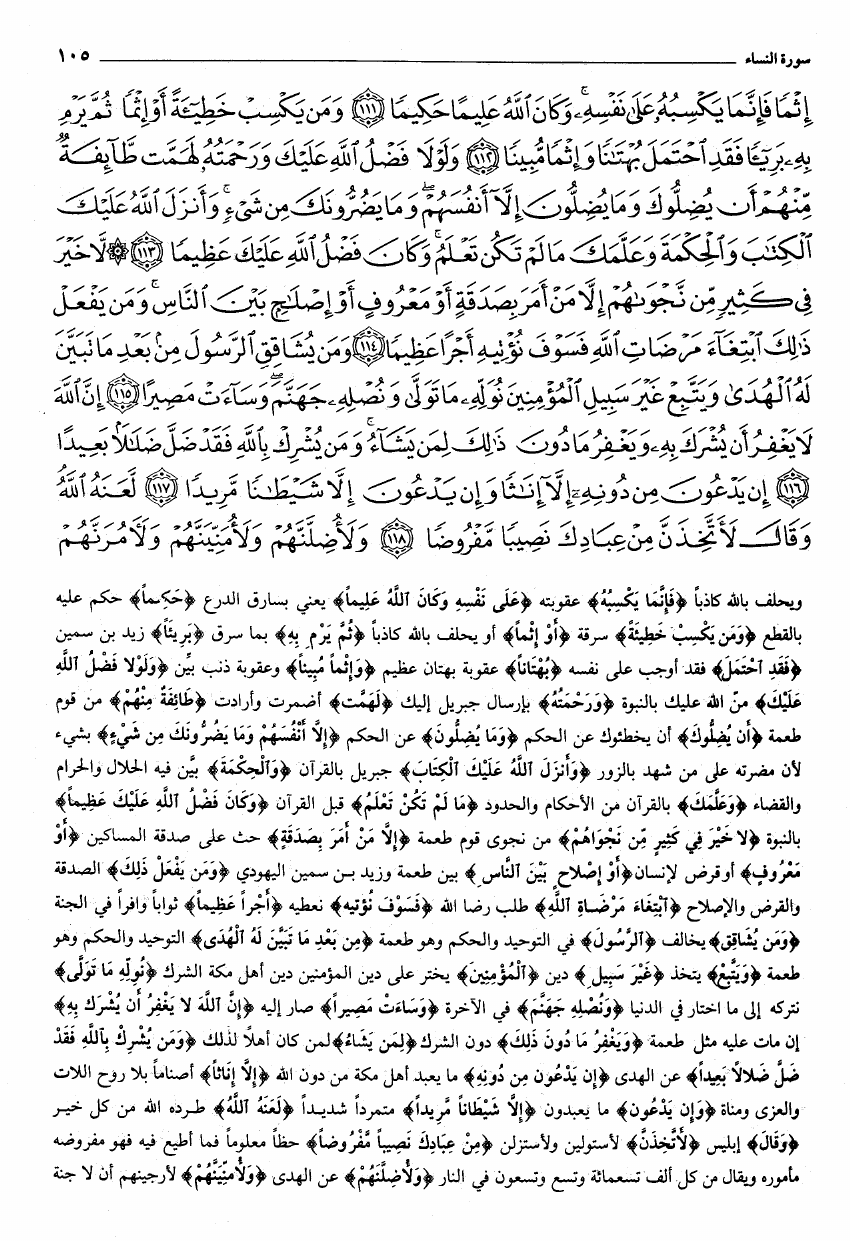 سورة النساء ١٠٥
إِثْمًا فَإِنَّمَا يَكْسِبُهُۥ عَلَىٰ نَفْسِهِۦ ۚ وَكَانَ ٱللَّهُ عَلِيمًا حَكِيمًا ﴿١١١﴾ وَمَن يَكْسِبْ خَطِيٓـَٔةً أَوْ إِثْمًا ثُمَّ يَرْمِ
بِهِۦ بَرِيٓـًٔا فَقَدِ ٱحْتَمَلَ بُهْتَٰنًا وَإِثْمًا مُّبِينًا ﴿١١٢﴾ وَلَوْلَا فَضْلُ ٱللَّهِ عَلَيْكَ وَرَحْمَتُهُۥ لَهَمَّت طَّآئِفَةٌ
مِّنْهُمْ أَن يُضِلُّوكَ وَمَا يُضِلُّونَ إِلَّآ أَنفُسَهُمْ ۖ وَمَا يَضُرُّونَكَ مِن شَىْءٍ ۚ وَأَنزَلَ ٱللَّهُ عَلَيْكَ
ٱلْكِتَٰبَ وَٱلْحِكْمَةَ وَعَلَّمَكَ مَا لَمْ تَكُن تَعْلَمُ ۚ وَكَانَ فَضْلُ ٱللَّهِ عَلَيْكَ عَظِيمًا ﴿١١٣﴾ ۞ لَّا خَيْرَ
فِى كَثِيرٍ مِّن نَّجْوَىٰهُمْ إِلَّا مَنْ أَمَرَ بِصَدَقَةٍ أَوْ مَعْرُوفٍ أَوْ إِصْلَٰحٍۭ بَيْنَ ٱلنَّاسِ ۚ وَمَن يَفْعَلْ
ذَٰلِكَ ٱبْتِغَآءَ مَرْضَاتِ ٱللَّهِ فَسَوْفَ نُؤْتِيهِ أَجْرًا عَظِيمًا ﴿١١٤﴾ وَمَن يُشَاقِقِ ٱلرَّسُولَ مِنۢ بَعْدِ مَا تَبَيَّنَ
لَهُ ٱلْهُدَىٰ وَيَتَّبِعْ غَيْرَ سَبِيلِ ٱلْمُؤْمِنِينَ نُوَلِّهِۦ مَا تَوَلَّىٰ وَنُصْلِهِۦ جَهَنَّمَ ۖ وَسَآءَتْ مَصِيرًا ﴿١١٥﴾ إِنَّ ٱللَّهَ
لَا يَغْفِرُ أَن يُشْرَكَ بِهِۦ وَيَغْفِرُ مَا دُونَ ذَٰلِكَ لِمَن يَشَآءُ ۚ وَمَن يُشْرِكْ بِٱللَّهِ فَقَدْ ضَلَّ ضَلَٰلًۢا بَعِيدًا
﴿١١٦﴾ إِن يَدْعُونَ مِن دُونِهِۦٓ إِلَّآ إِنَٰثًا وَإِن يَدْعُونَ إِلَّا شَيْطَٰنًا مَّرِيدًا ﴿١١٧﴾ لَّعَنَهُ ٱللَّهُ
وَقَالَ لَأَتَّخِذَنَّ مِنْ عِبَادِكَ نَصِيبًا مَّفْرُوضًا ﴿١١٨﴾ وَلَأُضِلَّنَّهُمْ وَلَأُمَنِّيَنَّهُمْ وَلَءَامُرَنَّهُمْ
ويحلف بالله كاذباً ﴿فَإِنَّمَا يَكْسِبُهُ﴾ عقوبته ﴿عَلَى نَفْسِهِ وَكَانَ ٱللَّهُ عَلِيماً﴾ يعني بسارق الدرع ﴿حَكِيماً﴾ حكم عليه
بالقطع ﴿وَمَن يَكْسِبْ خَطِيئَةً﴾ سرقة ﴿أَوْ إِثْماً﴾ أو يحلف بالله كاذباً ﴿ثُمَّ يَرْمِ بِهِ﴾ بما سرق ﴿بَرِيئاً﴾ زيد بن سمين
﴿فَقَدِ ٱحْتَمَلَ﴾ فقد أوجب على نفسه ﴿بُهْتَاناً﴾ عقوبة بهتان عظيم ﴿وَإِثْماً مُبِيناً﴾ وعقوبة ذنب بيِّن ﴿وَلَوْلاَ فَضْلُ ٱللَّهِ
عَلَيْكَ﴾ منّ الله عليك بالنبوة ﴿وَرَحْمَتُهُ﴾ بإرسال جبريل إليك ﴿لَهَمَّت﴾ أضمرت وأرادت ﴿طَائِفَةٌ مِنْهُمْ﴾ من قوم
طعمة ﴿أَن يُضِلُّوكَ﴾ أن يخطئوك عن الحكم ﴿وَمَا يُضِلُّونَ﴾ عن الحكم ﴿إِلاَّ أَنْفُسَهُمْ وَمَا يَضُرُّونَكَ مِن شَيْءٍ﴾ بشيء
لأن مضرته على من شهد بالزور ﴿وَأَنزَلَ ٱللَّهُ عَلَيْكَ ٱلْكِتَابَ﴾ جبريل بالقرآن ﴿وَٱلْحِكْمَةَ﴾ بيَّن فيه الحلال والحرام
والقضاء ﴿وَعَلَّمَكَ﴾ بالقرآن من الأحكام والحدود ﴿مَا لَمْ تَكُنْ تَعْلَمُ﴾ قبل القرآن ﴿وَكَانَ فَضْلُ ٱللَّهِ عَلَيْكَ عَظِيماً﴾
بالنبوة ﴿لاَ خَيْرَ فِي كَثِيرٍ مِّن نَجْوَاهُمْ﴾ من نجوى قوم طعمة ﴿إِلاَّ مَنْ أَمَرَ بِصَدَقَةٍ﴾ حث على صدقة المساكين ﴿أَوْ
مَعْرُوفٍ﴾ أو قرض لإنسان ﴿أَوْ إِصْلاَحٍ بَيْنَ ٱلنَّاسِ﴾ بين طعمة وزيد بن سمين اليهودي ﴿وَمَن يَفْعَلْ ذَلِكَ﴾ الصدقة
والقرض والإصلاح ﴿ٱبْتِغَاءَ مَرْضَاةِ ٱللَّهِ﴾ طلب رضا الله ﴿فَسَوْفَ نُؤتِيه﴾ نعطيه ﴿أَجْراً عَظِيماً﴾ ثواباً وافراً في الجنة
﴿وَمَن يُشَاقِقِ﴾ يخالف ﴿ٱلرَّسُولَ﴾ في التوحيد والحكم وهو طعمة ﴿مِن بَعْدِ مَا تَبَيَّنَ لَهُ ٱلْهُدَى﴾ التوحيد والحكم وهو
طعمة ﴿وَيَتَّبِعْ﴾ يتخذ ﴿غَيْرَ سَبِيلِ﴾ دين ﴿ٱلْمُؤْمِنِينَ﴾ يختر على دين المؤمنين دين أهل مكة الشرك ﴿نُوَلِّهِ مَا تَوَلَّى﴾
نتركه إلى ما اختار في الدنيا ﴿وَنُصْلِهِ جَهَنَّمَ﴾ في الآخرة ﴿وَسَاءَتْ مَصِيراً﴾ صار إليه ﴿إِنَّ ٱللَّهَ لاَ يَغْفِرُ أَن يُشْرَكَ بِهِ﴾
إن مات عليه مثل طعمة ﴿وَيَغْفِرُ مَا دُونَ ذَلِكَ﴾ دون الشرك ﴿لِمَن يَشَاءُ﴾ لمن كان أهلاً لذلك ﴿وَمَن يُشْرِكْ بِٱللَّهِ فَقَدْ
ضَلَّ ضَلاَلاً بَعِيداً﴾ عن الهدى ﴿إِن يَدْعُونَ مِن دُونِهِ﴾ ما يعبد أهل مكة من دون الله ﴿إِلاَّ إِنَاثاً﴾ أصناماً بلا روح اللات
والعزى ومناة ﴿وَإِن يَدْعُونَ﴾ ما يعبدون ﴿إِلاَّ شَيْطَاناً مَّرِيداً﴾ متمرداً شديداً ﴿لَعَنَهُ ٱللَّهُ﴾ طرده الله من كل خير
﴿وَقَالَ﴾ إبليس ﴿لأَتَّخِذَنَّ﴾ لأستولين ولأستزلن ﴿مِنْ عِبَادِكَ نَصِيباً مَّفْرُوضاً﴾ حظاً معلوماً فما أطيع فيه فهو مفروضه
مأموره ويقال من كل ألف تسعمائة وتسع وتسعون في النار ﴿وَلأُضِلَّنَّهُمْ﴾ عن الهدى ﴿وَلأُمَنِّيَنَّهُمْ﴾ لأرجينهم أن لا جنة